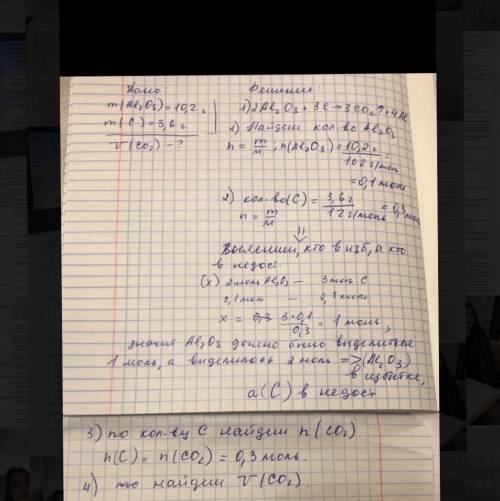 Дано
m(Al₂O₃)=10,2 г
m(C)=3,6 г
V(CO₂)-?
Решение:
1) 2Al₂O₃ + 3C → 3CO₂↑ + 4Al
1) Найдем кол-во Al₂O₃
n = m/M; n(Al₂O₃) = 10,2 г / 102 г/моль =
= 0,1 моль
2) кол-во(C) = 3,6 г / 12 г/моль = 0,3 моль
n = m/M
⇓
Выясним, кто в изб, а кто
в недост
(x) 2 моль Al₂O₃ — 3 моль C
0,1 мол — 0,3 мол
x = 3·0,1 / 0,3 = 1 моль,
значит Al₂O₃ должно было выделиться
1 моль, а выделилось 2 моль => (Al₂O₃)
в избытке,
а (C) в недост
3) по кол-ву C найдем n(CO₂)
n(C) = n(CO₂) = 0,3 моль.
4) найдем V(CO₂).